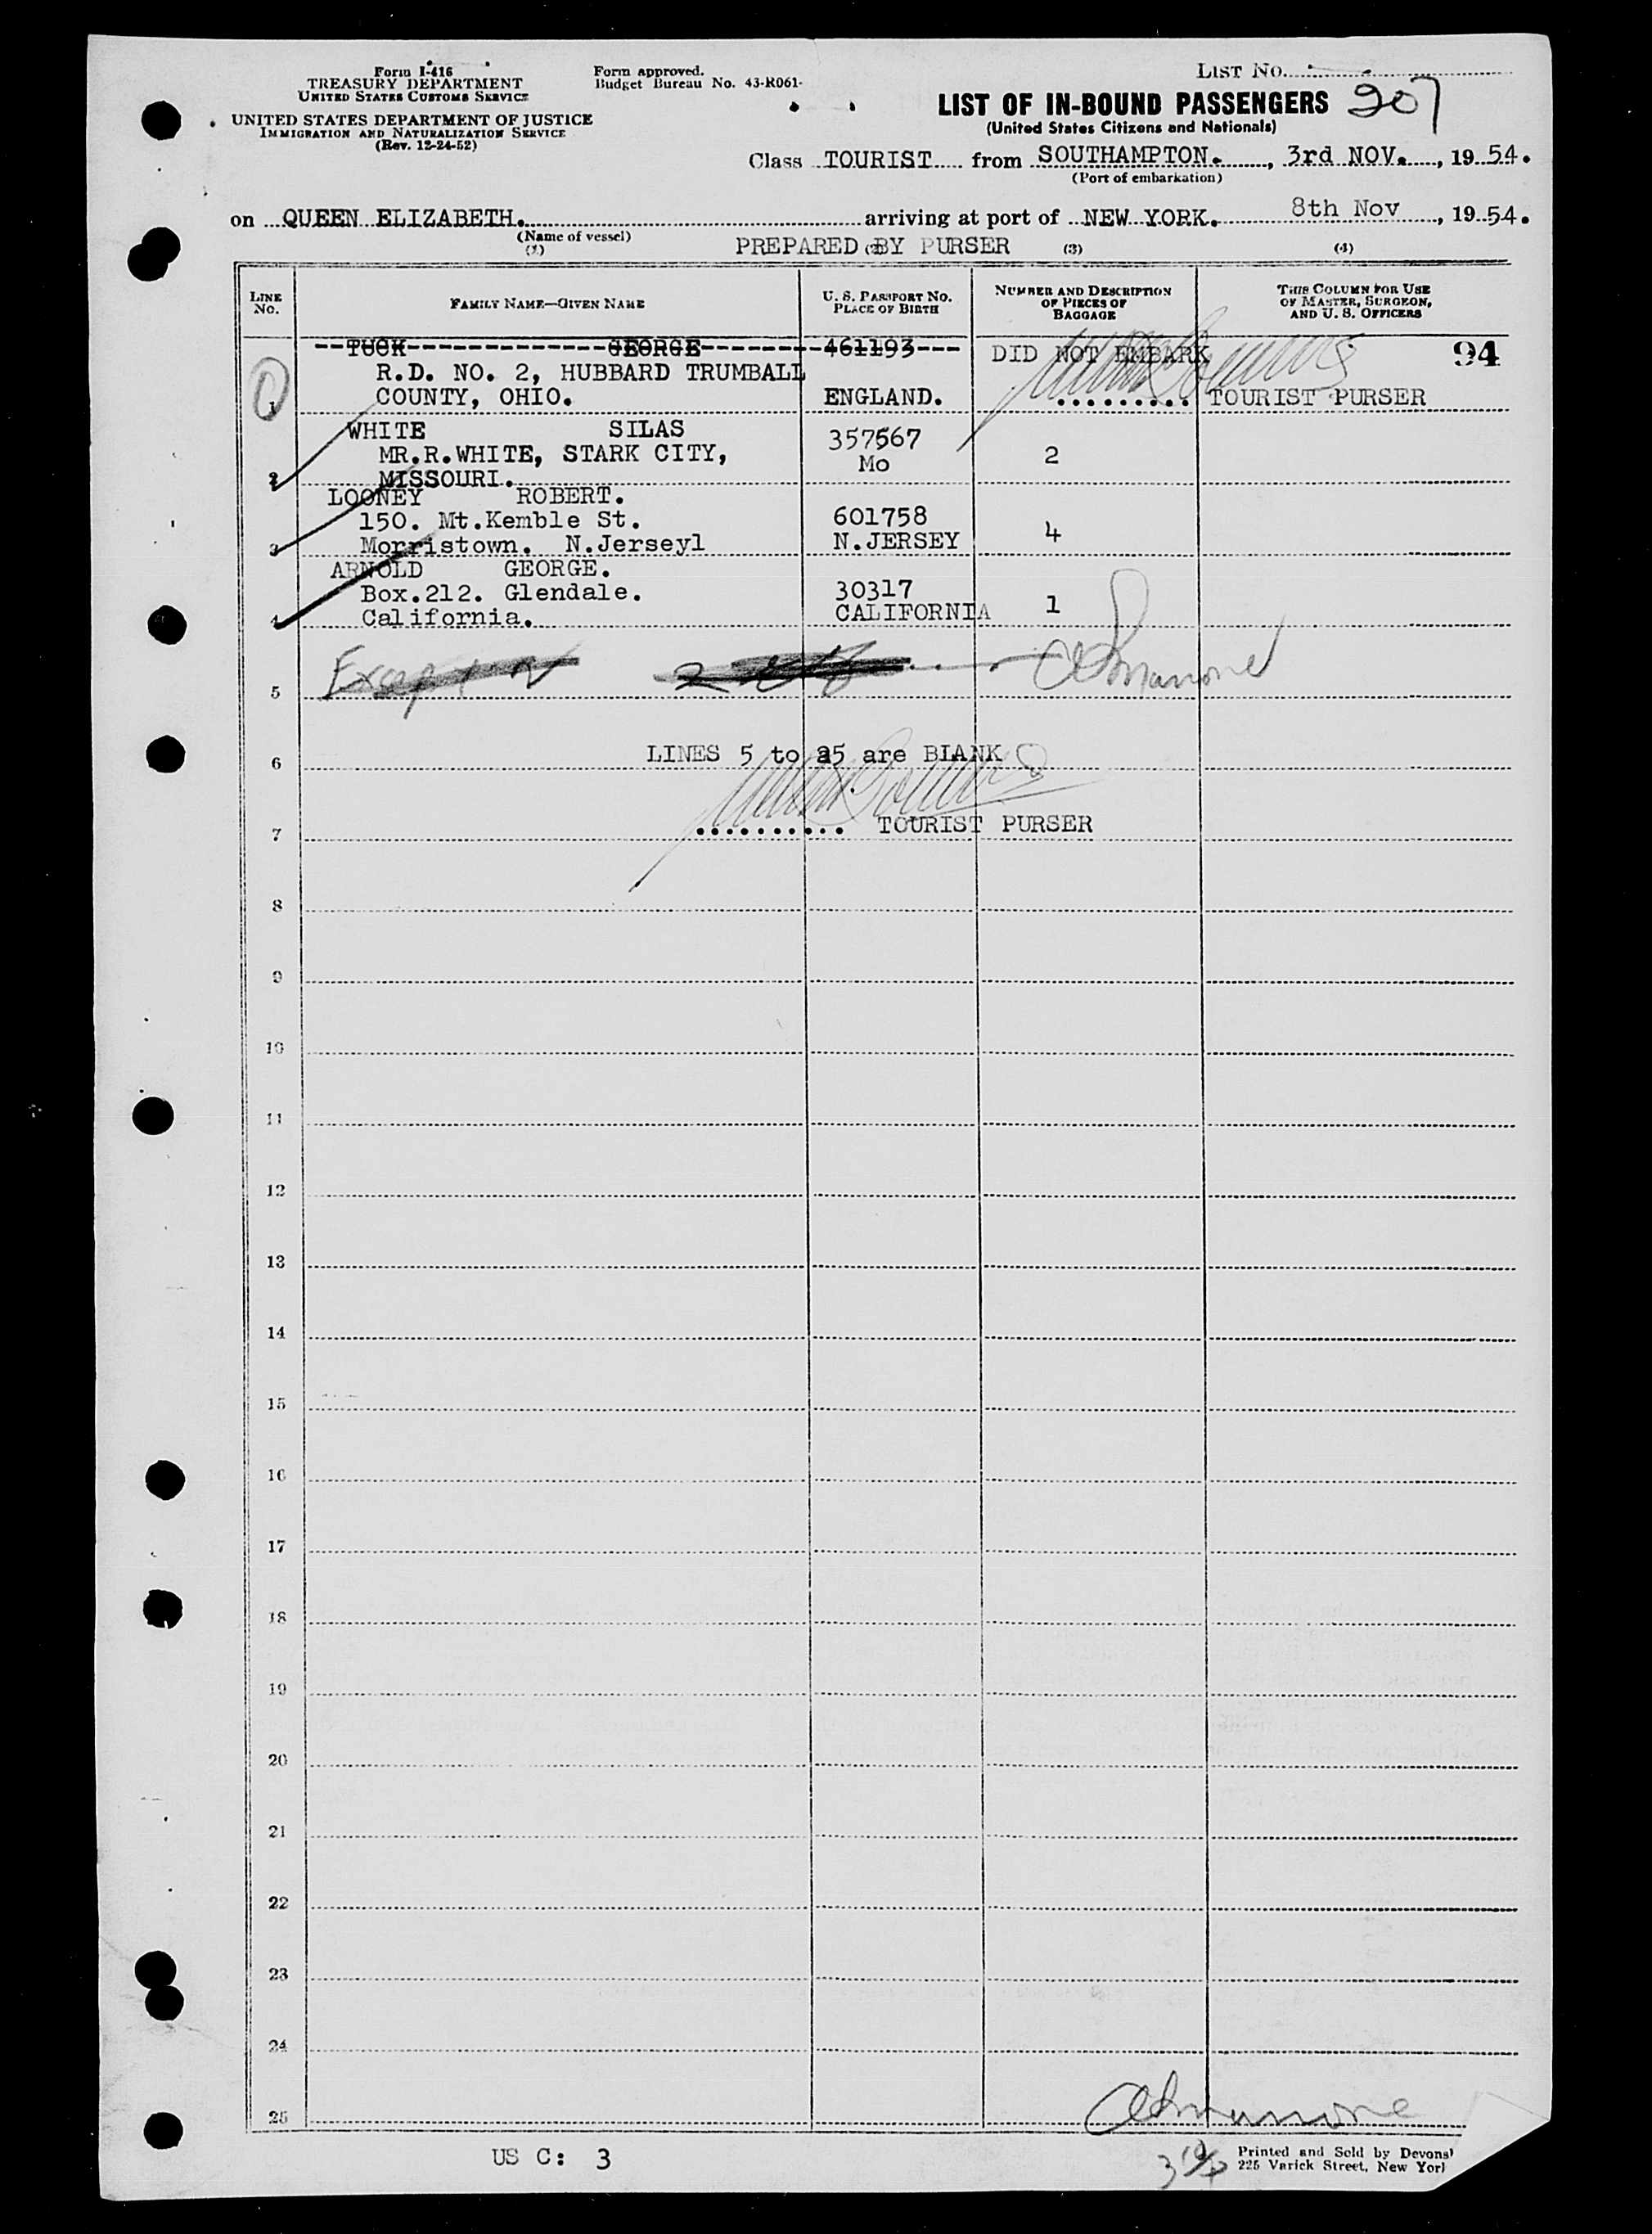 Form I-416
TREASURY DEPARTMENT
UNITED STATES CUSTOMS SERVICE
UNITED STATES DEPARTMENT OF JUSTICE
IMMIGRATION AND NATURALIZATION SERVICE
(Rev. 12-24-52)
Form approved.
Budget Bureau No. 43-R061-
LIST No.
LIST OF IN-BOUND PASSENGERS 207
(United States Citizens and Nationals)
Class TOURIST from SOUTHAMPTON., 3rd NOV., 19 54.
(Port of embarkation)
on QUEEN ELIZABETH. arriving at port of NEW YORK. 8th Nov, 19 54.
(Name of vessel)
(1) PREPARED (2) BY PURSER (3) (4)
LINE No. FAMILY NAME—GIVEN NAME U. S. PASSPORT No. PLACE OF BIRTH NUMBER AND DESCRIPTION OF PIECES OF BAGGAGE THIS COLUMN FOR USE OF MASTER, SURGEON, AND U. S. OFFICERS
--TUCK-------------GEORGE--------461193--- DID NOT EMBARK 94
R.D. NO. 2, HUBBARD TRUMBALL
1 COUNTY, OHIO. ENGLAND. ......... TOURIST PURSER
WHITE SILAS 357567
MR.R.WHITE, STARK CITY, Mo 2
2 MISSOURI.
LOONEY ROBERT.
150. Mt.Kemble St. 601758 4
3 Morristown. N.Jerseyl N.JERSEY
ARNOLD GEORGE.
Box.212. Glendale. 30317 1
4 California. CALIFORNIA
Except
5
6 LINES 5 to 25 are BLANK
7 .......... TOURIST PURSER
8
9
10
11
12
13
14
15
16
17
18
19
20
21
22
23
24
25
US C: 3
Printed and Sold by Devons
225 Varick Street, New Yor